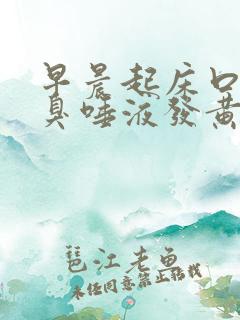 早晨起床口
臭唾液發黄
琶江老鱼
未经同意禁止转载